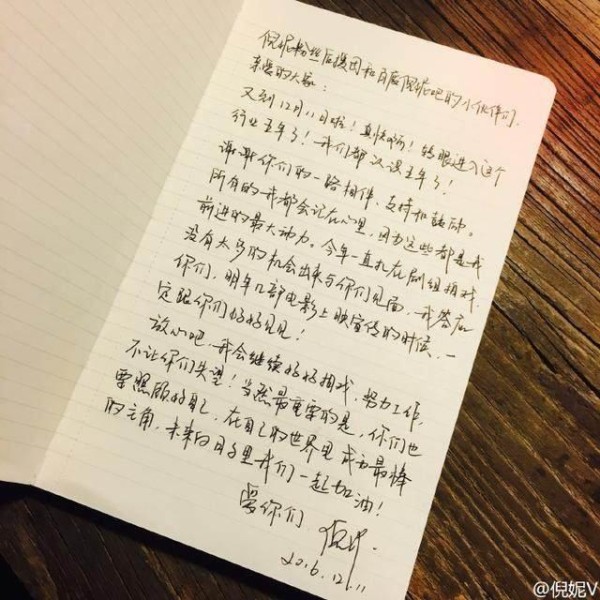 倪妮粉丝后援团和百度倪妮吧的小伙伴们、
亲爱的大家：
又到12月11日啦！真快呀！转眼进入这个
行业五年了！我们都认识五年了！
谢谢你们的一路相伴、支持和鼓励。
所有的我都会记在心里，因为这些都是我
前进的最大动力。今年一直扎在剧组拍戏，
没有太多的机会出来与你们见面，我答应
你们，明年几部电影上映宣传的时候，一
定跟你们好好见见！
放心吧，我会继续好好拍戏，努力工作，
不让你们失望！当然最重要的是，你们也
要照顾好自己，在自己的世界里成为最棒
的主角，未来的日子里我们一起加油！
爱你们 倪妮.
2016.12.11
@倪妮V